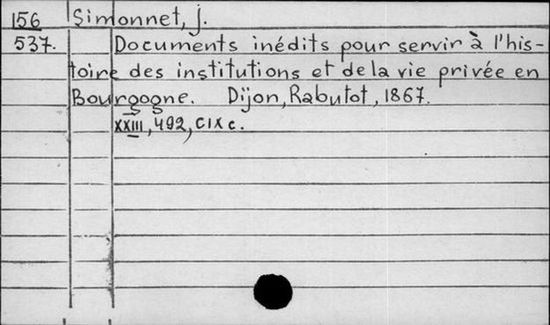 156 Simonnet, J.
537. Documents inédits pour servir à l'his-
toire des institutions et de la vie privée en
Bourgogne. Dijon, Rabutot, 1867.
XXIII, 492, CIX c.